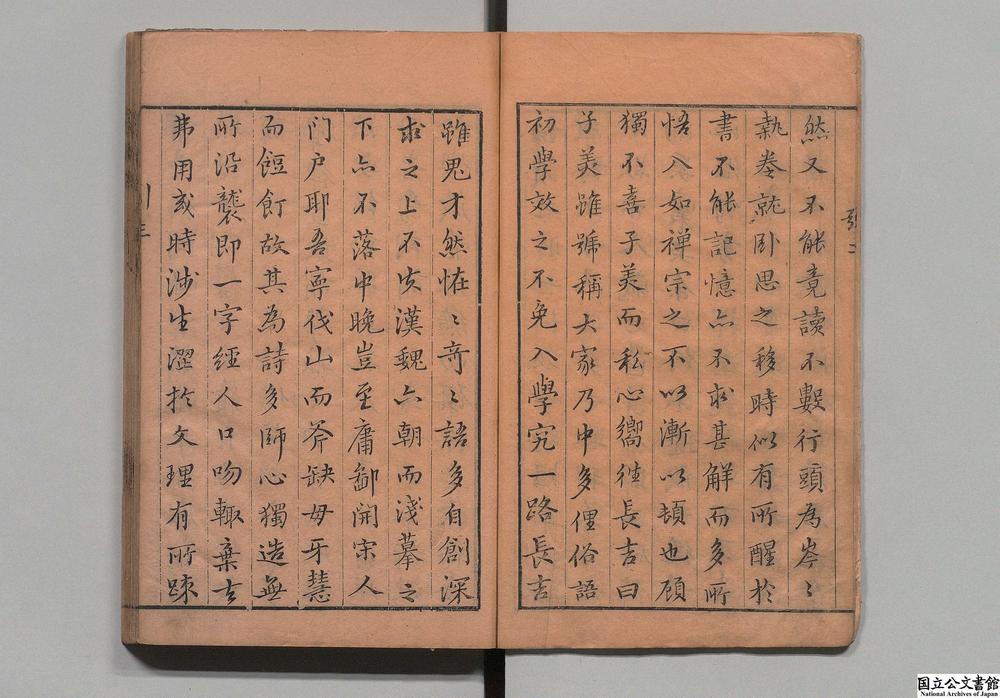 然又不能竟讀不數行頭為岑〻
執卷就卧思之移時似有所醒於
書不能記憶亦不求甚解而多所
悟入如禅宗之不以漸以頓也顧
獨不喜子美而私心嚮徃長吉曰
子美雖號稱大家乃中多俚俗語
初學效之不免入學究一路長吉
雖鬼才然恠〻竒〻語多自創深
求之上不失漢魏六朝而淺摹之
下亦不落中晚豈至庸鄙開宋人
门户耶吾寧伐山而斧缺毋牙慧
而餖飣故其為詩多師心獨造無
所沿襲即一字經人口吻輙棄去
弗用或時涉生澀於文理有所踈
国立公文書館
National Archives of Japan